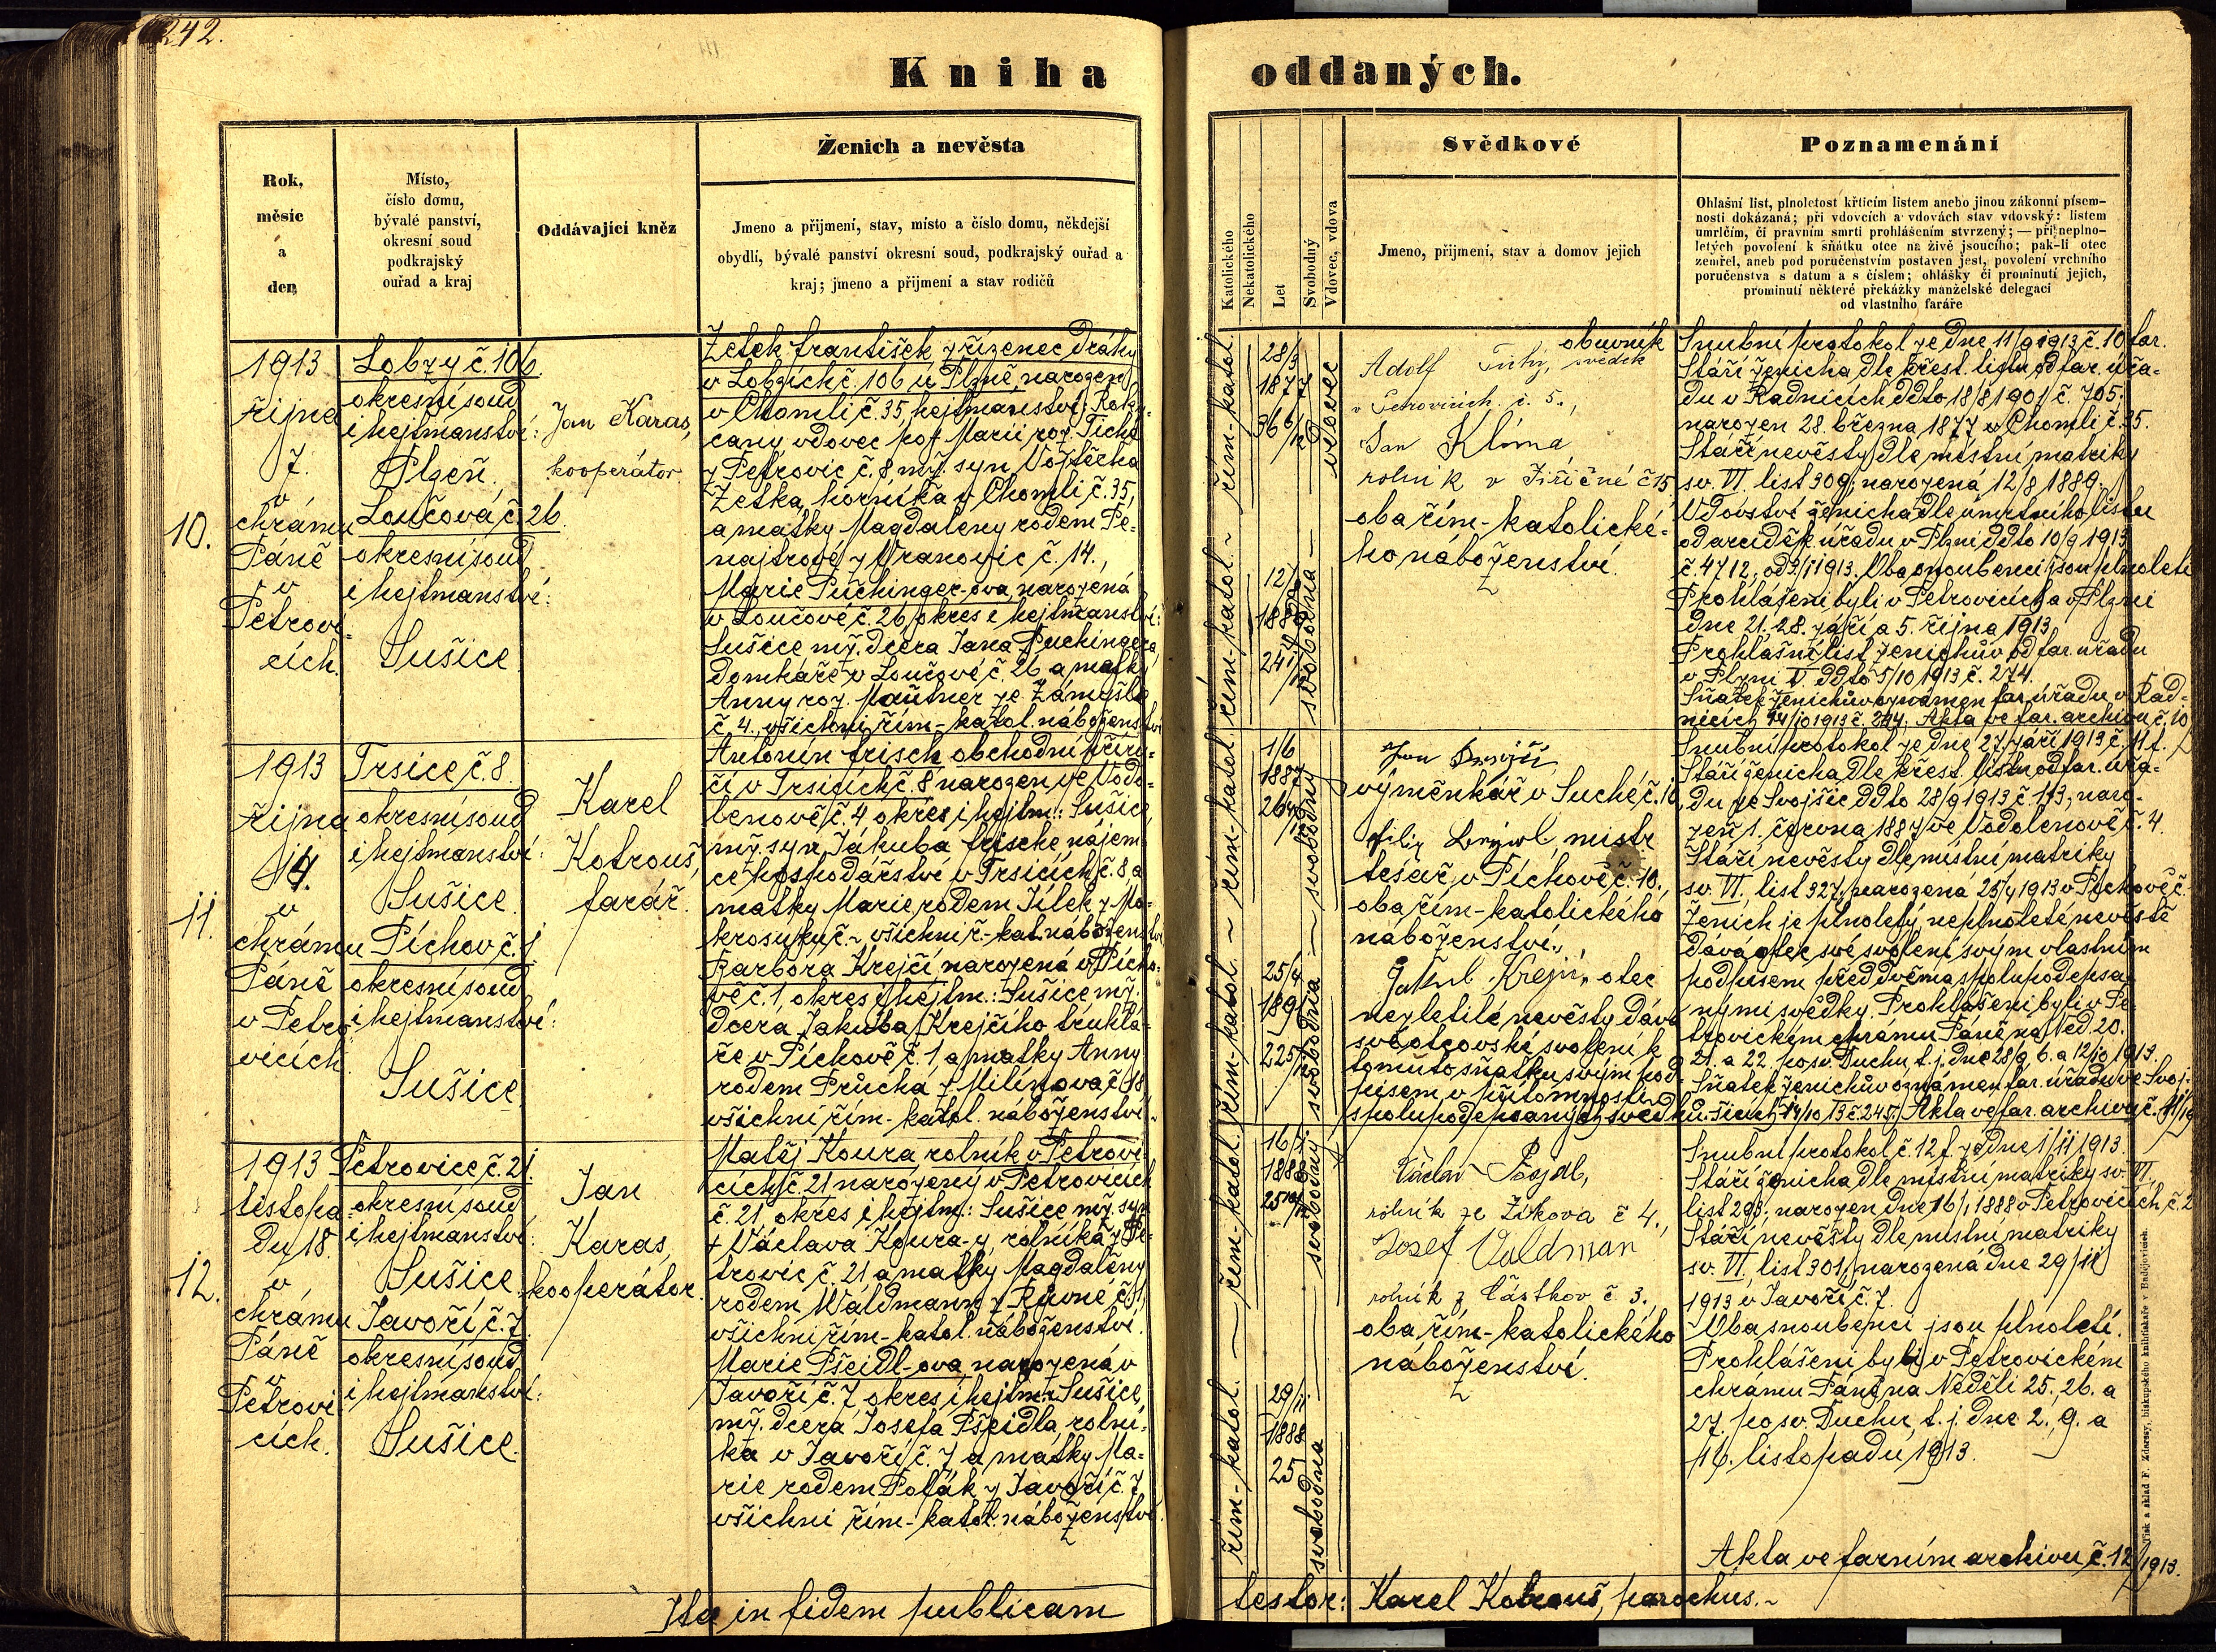 242.
Kniha oddaných.
Rok,
měsíc
a
den
Místo,
číslo domu,
bývalé panství,
okresní soud
podkrajský
ouřad a kraj
Oddávající kněz
Ženich a nevěsta
Jmeno a přijmení, stav, místo a číslo domu, někdejší
obydlí, bývalé panství okresní soud, podkrajský ouřad a
kraj; jmeno a přijmení a stav rodičů
Katolického
Nekatolického
Let
Svobodný
Vdovec, vdova
Svědkové
Jmeno, přijmení, stav a domov jejich
Poznamenání
Ohlašní list, plnoletost křticím listem anebo jinou zákonní písem-
nosti dokázaná; při vdovcích a vdovách stav vdovský: listem
umrlčím, či pravním smrti prohlášením stvrzený; — při neplno-
letých povolení k sňátku otce na živě jsoucího; pak-li otec
zemřel, aneb pod poručenstvím postaven jest, povolení vrchního
poručenstva s datum a s číslem; ohlášky či prominutí jejich,
prominutí některé překážky manželské delegací
od vlastního faráře
10.
1913
října
7.
v
chrámu
Páně
v
Petrovi-
cích.
Lobzy č. 106.
okresní soud
i hejtmanství:
Plzeň.
Loučová č. 26.
okresní soud
i hejtmanství:
Sušice.
Jan Karas,
kooperátor.
Zetek František, zřízenec dráhy
v Lobzích č. 106 u Plzně, narozen
v Chomli č. 35, hejtmanství: Roky-
cany vdovec po † Marii roz. Tiché
z Petrovic č. 8 mž. syn Vojtěcha
Zetka, horníka v Chomli č. 35,
a matky Magdaleny rodem Pe-
najtrové z Vranovic č. 14.,
Marie Puchinger-ova, narozená
v Loučové č. 26, okres i hejtmanství:
Sušice mž. dcera Jana Puchingera,
domkáře v Loučové č. 26 a matky
Anny roz. Mautner ze Zámyšle
č. 4., všichni řím-katol. náboženství
řím-katol.
28/3
1877
36 6/12
vdovec
řím-katol.
12/8
1889
24 1/12
svobodna
obuvník
Adolf Tichý, svědek
v Petrovicích č. 5.,
Jan Klíma,
rolník v Jiřičné č 15,
oba řím-katolické-
ho náboženství.
Snubní protokol ze dne 11/9 1913 č. 10 far.
Stáří ženicha dle křest. listu od far. úřa-
du v Radnicích ddto 18/8 1901 č. 705.
narozen 28. března 1877 v Chomli č. 35.
Stáří nevěsty dle místní matriky
sv. VI. list 309, narozená 12/8 1889.
Vdovství ženicha dle úmrtního listu
od arciděk. úřadu v Plzni ddto 10/9 1913
č. 4712. Oba snoubenci jsou plnoletí
Prohlášeni byli v Petrovicích a v Plzni
dne 21., 28. září a 5. října 1913.
Prohlašní list ženichův od far. úřadu
v Plzni ddto 5/10 1913 č. 274.
Sňatek ženichův oznámen far. úřadu v Rad-
nicích 14/10 1913 č. 244. Akta ve far. archivu č. 10
11.
1913
října
14.
v
chrámu
Páně
v Petro-
vicích
Trsice, č. 8.
okresní soud
i hejtmanství:
Sušice.
Píchov č. 1
okresní soud
i hejtmanství:
Sušice.
Karel
Kotrouš,
farář.
Antonín Frisch obchodní příru-
čí v Trsicích č. 8 narozen ve Vodo-
lenově č. 4 okres i hejtm.: Sušice,
mž. syn Jakuba Frische nájem-
ce hospodářství v Trsicích č. 8, a
matky Marie, rodem Jílek z Mo-
krosuku č. ~ všichni ř.-kat. náboženství
Barbora Krejčí, narozená v Pícho-
vě č. 1, okres i hejtm.: Sušice mž.
dcera Jakuba Krejčího truhlá-
ře v Píchově č. 1 a matky Anny
rodem Průcha z Milínova č. 18
všichni řím-katol. náboženství.
řím-katol.
1/6
1887
26 4/12
svobodný
řím-katol.
25/4
189
22 5/12
svobodna
Jan
výměnkář v Suché č. 10,
Filip mistr
tesař v Píchově č. 10.,
oba řím-katolického
náboženství.,
Jakub Krejčí, otec
nezletilé nevěsty dává
své otcovské svolení k
tomuto sňatku svým pod-
pisem v přítomnosti
spolupodepsaných svědků.
Snubní protokol ze dne 27. září 1913 č. 11 f.
Stáří ženicha dle křest. listu od far. úřa-
du ve Svojšic ddto 28/9 1913 č. 113, naro-
zen 1. června 1887 ve Vodolenově č. 4.
Stáří nevěsty dle místní matriky
sv. VI. list 327, narozená 25/4 1913 v Píchově č.
Ženich je plnoletý, neplnoleté nevěstě
dává otec své svolení svým vlastním
podpisem před dvěma spolupodepsa-
nými svědky. Prohlášeni byli v Pe-
trovickém chrámu Páně na Něd. 20.
21. a 22. po sv. Duchu, t. j. dne 28/9 6. a 12/10 1913.
Sňatek ženichův oznámen far. úřadu ve Svoj-
šicích 14/10 13 č 245. Akta ve far. archivu č. 11/19
12.
1913
listopa-
du 18.
v
chrámu
Páně
v
Petrovi-
cích.
Petrovice, č. 21
okresní soud
i hejtmanství:
Sušice.
Javoří, č. 7.
okresní soud
i hejtmanství:
Sušice.
Jan
Karas,
kooperátor.
Matěj Koura rolník v Petrovi-
cích č. 21 narozený v Petrovicích
č. 21 okres i hejtm.: Sušice mž. syn
† Václava Koura-y, rolníka z Pe-
trovic č. 21 a matky Magdalény
rodem Waldmann z Rovné č.
všichni řím-katol. náboženství.
Marie Pšeidl-ova, narozená v
Javoří č. 7, okres i hejtm. Sušice,
mž. dcera Josefa Pšeidla, rolní-
ka v Javoří č. 7 a matky Ma-
rie rodem Polák z Javoří č. 7
všichni řím-katol. náboženství.
řím-katol.
16/1
1888
25 10/12
svobodný
řím-katol.
29/11
1888
25
svobodna
Václav
rolník ze Žikova č 4.,
Josef Valdman
rolník z Částkov č 3.
oba řím-katolického
náboženství.
Snubní protokol č. 12 f. ze dne 1/11 1913.
Stáří ženicha dle místní matriky sv. VI,
list 298, narozen dne 16/1 1888 v Petrovicích č. 2
Stáří nevěsty dle místní matriky
sv. VI. list 301, narozená dne 29/11
1913 v Javoří č. 7.
Oba snoubenci jsou plnoletí.
Prohlášeni byli v Petrovickém
chrámu Páně na Neděli 25., 26. a
27. po sv. Duchu, t. j. dne 2., 9. a
16. listopadu, 1913.
Akta ve farním archivu č. 12/1913.
Ita in fidem publicam testor: Karel Kotrouš, parochus.
Tisk a sklad F. Zdarssy, biskupského knihtiskaře v Budějovicích.